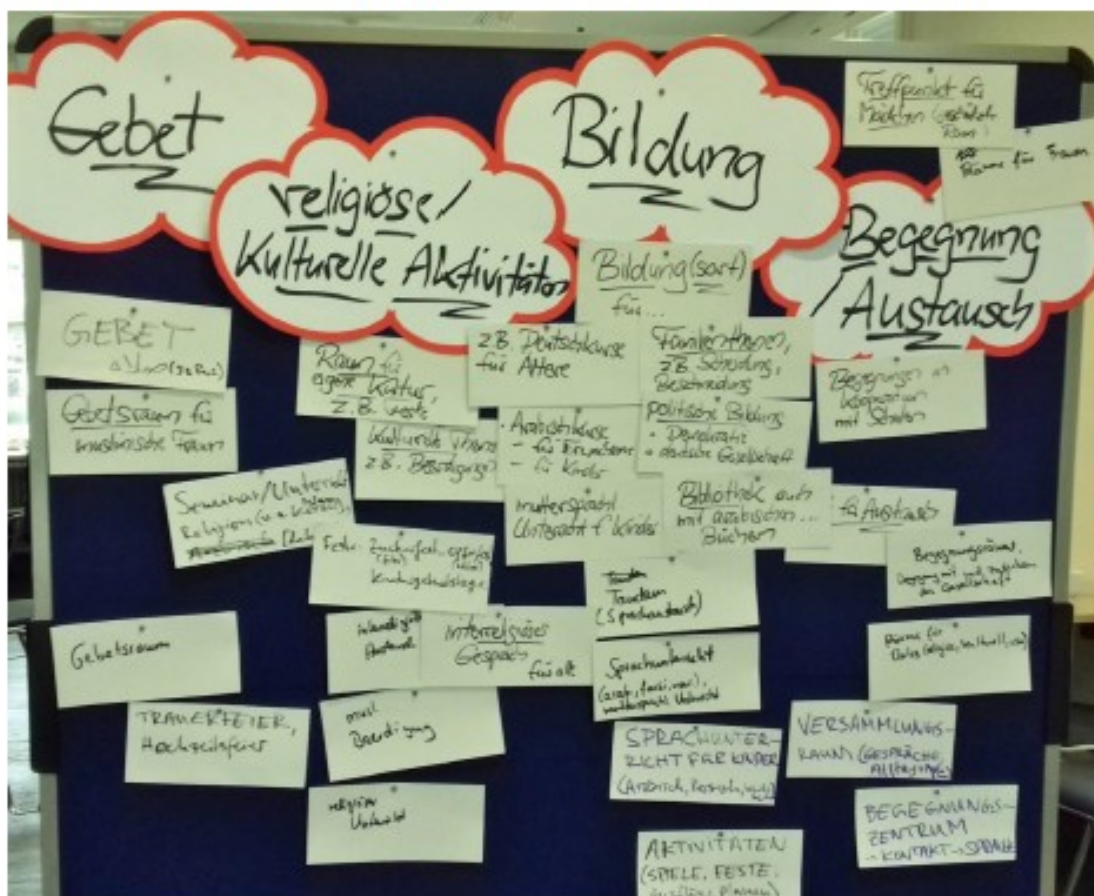 Gebet
religiöse/
Kulturelle Aktivitäten
Bildung
Begegnung
/Austausch
Treffpunkt für
Mädchen
Räume für Frauen
GEBET
Gebetsraum für
muslimische Frauen
Seminar/Unterricht
Religion
Gebetsraum
TRAUERFEIER,
Hochzeitsfeier
Raum für
eigene Kultur,
z.B. Feste
Kulturelle
z.B. Beerdigungen
Feste: Zuckerfest, Opferfest
Kindergeburtstage
interreligiöses
Gespräch
für alle
musl.
Beerdigung
religiöser
Unterricht
Bildung(sort)
für...
z.B. Deutschkurse
für Ältere
Familienthemen,
z.B. Scheidung,
Beschneidung
- Arabischkurse
- für Erwachsene
- für Kinder
politische Bildung
• Demokratie
• deutsche Gesellschaft
muttersprachl.
Unterricht f. Kinder
Bibliothek auch
mit arabischen...
Büchern
Tandem
(Sprachaustausch)
Sprachunterricht
(arab., farsi,
muttersprachl. Unterricht
SPRACHUNTER-
RICHT FÜR KINDER
(Arabisch, Persisch,
AKTIVITÄTEN
(SPIELE, FESTE,
Begegnungen in
Kooperation
mit Schulen
für Austausch
Begegnungsräume,
Begegnung mit und zwischen
der Gesellschaft
Räume für
VERSAMMLUNGS-
RAUM (GESPRÄCHE
BEGEGNUNGS-
ZENTRUM
→ KONTAKT → SPRACHE